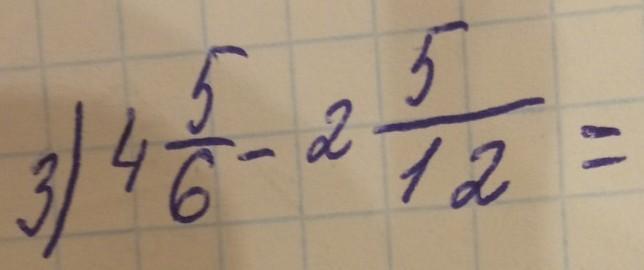 3) 4 5/6 - 2 5/12 =